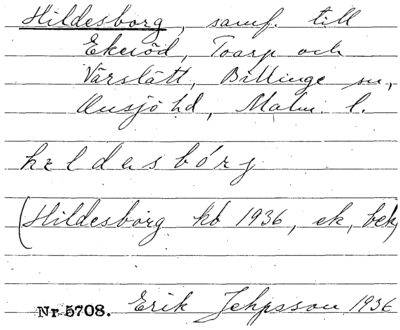 Hildesborg, samf. till
Ekeröd, Toarp och
Vårslätt, Billinge sn,
Onsjö hd, Malm. l.
hɛldasbórg
(Hildesborg kb 1936, ek, bek)
Nr 5708. Erik Jeppsson 1936